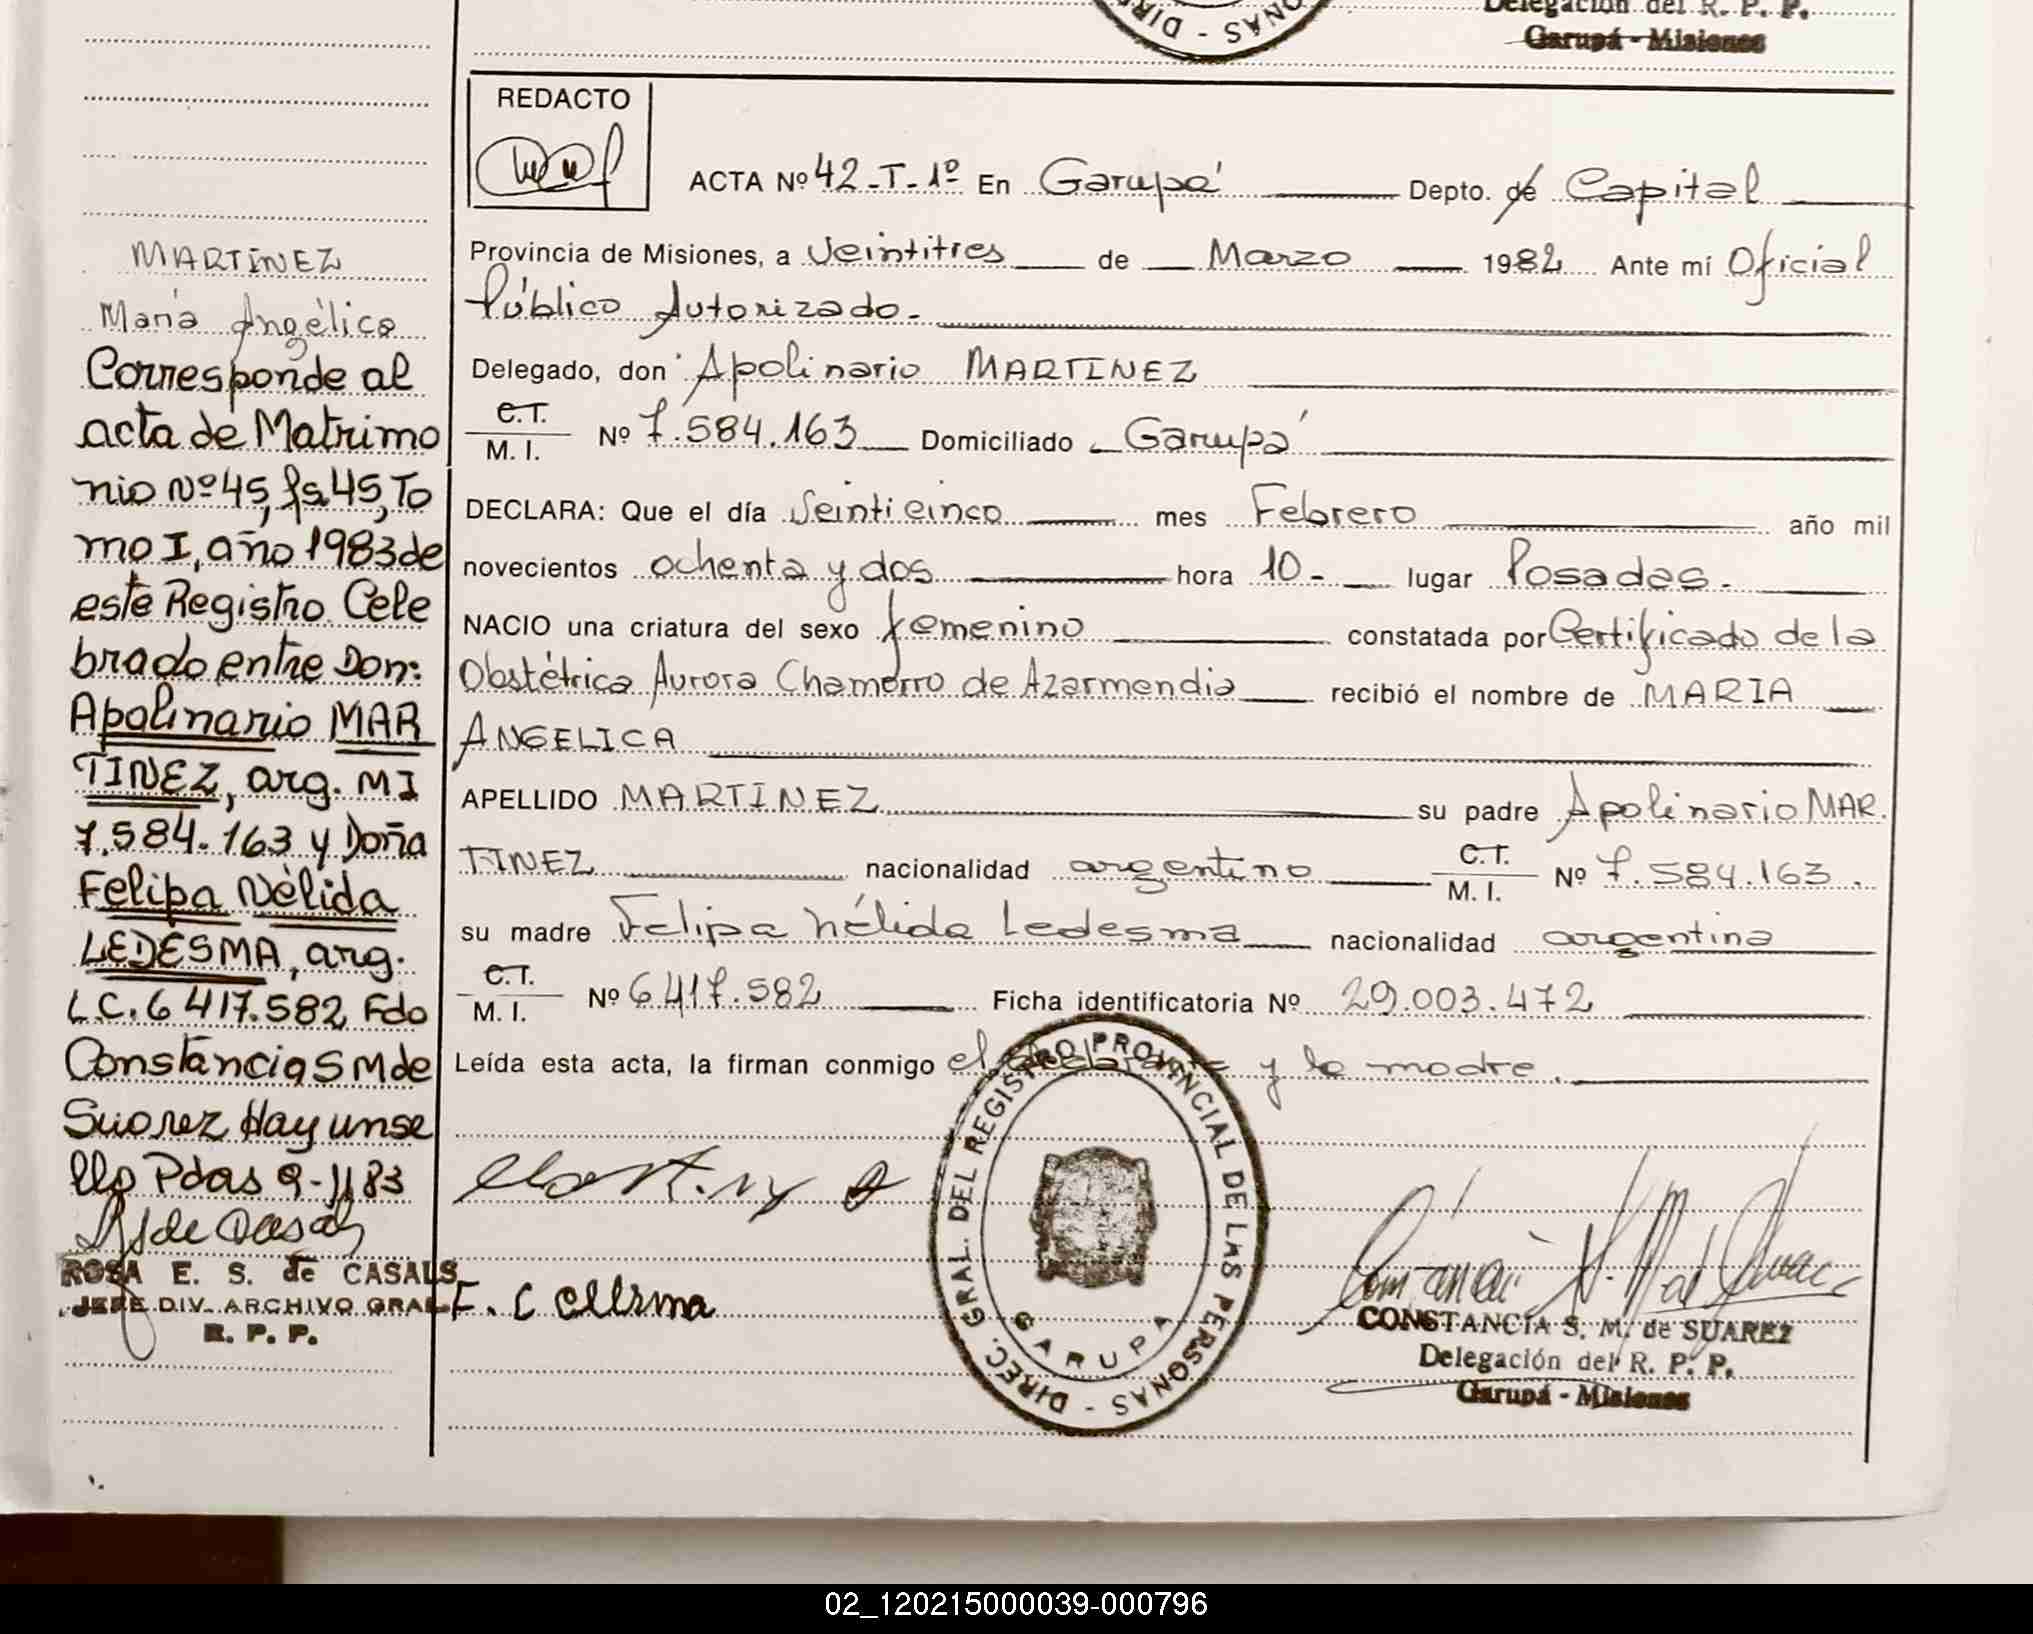 Delegación del R. P. P.
Garupá - Misiones
DIREC. GRAL. DEL REGISTRO PROVINCIAL DE LAS PERSONAS -
REDACTO
ACTA Nº 42-T-1º En Garupá Depto. de Capital
Provincia de Misiones, a Veintitres de Marzo 1982 Ante mí Oficial
Público Autorizado.-
Delegado, don Apolinario MARTINEZ
C.T.
M. I. Nº 7.584.163 Domiciliado Garupá
DECLARA: Que el día Veinticinco mes Febrero año mil
novecientos ochenta y dos hora 10- lugar Posadas.
NACIO una criatura del sexo femenino constatada por Certificado de la
Obstétrica Aurora Chamorro de Azarmendia recibió el nombre de MARIA
ANGELICA
APELLIDO MARTINEZ su padre Apolinario MAR
TINEZ nacionalidad argentino C.T.
M. I. Nº 7.584.163.
su madre Felipa Nélida Ledesma nacionalidad argentina
C.T.
M. I. Nº 6.417.582 Ficha identificatoria Nº 29.003.472
Leída esta acta, la firman conmigo el declarante y la madre.
GARUPA
CONSTANCIA S. M. de SUAREZ
Delegación del R. P. P.
Garupá - Misiones
MARTINEZ
María Angélica
Corresponde al
acta de Matrimo
nio Nº 45, fs.45, To
mo I, año 1983 de
este Registro. Cele
brado entre Don:
Apolinario MAR
TINEZ, arg. MI
7.584.163 y Doña
Felipa Nélida
LEDESMA, arg.
L.C. 6 417.582 Fdo
Constancia S M de
Suarez Hay un se
llo Pdas 9-11 83
ROSA E. S. de CASALS
JEFE DIV. ARCHIVO GRAL
R. P. P.
02_120215000039-000796